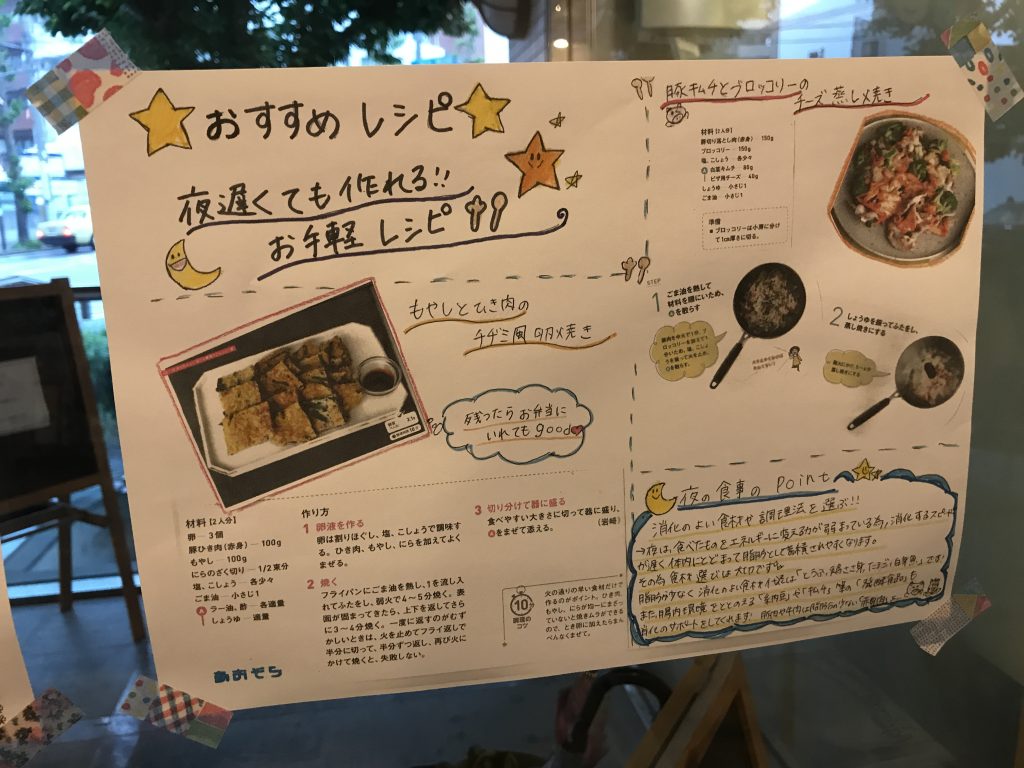 おすすめ レシピ
夜遅くても作れる!!
お手軽 レシピ
もやしとひき肉の
チヂミ風卵焼き
残ったらお弁当に
いれても good
材料【2人分】
卵…3個
豚ひき肉(赤身)…100g
もやし…100g
にらのざく切り…1/2束分
塩、こしょう…各少々
ごま油…小さじ1
A ラー油、酢…各適量
しょうゆ…適量
あおぞら
作り方
1 卵液を作る
卵は割りほぐし、塩、こしょうで調味す
る。ひき肉、もやし、にらを加えてよく
まぜる。
2 焼く
フライパンにごま油を熱し、1を流し入
れてふたをし、弱火で4〜5分焼く。表
面が固まってきたら、上下を返してさら
に3〜4分焼く。一度に返すのがむず
かしいときは、火を止めてフライ返しで
半分に切って、半分ずつ返し、再び火に
かけて焼くと、失敗しない。
3 切り分けて器に盛る
食べやすい大きさに切って器に盛り、
Aをまぜて添える。
(岩﨑)
10
調理の
コツ
火の通りの早い食材だけで
作るのがポイント。ひき肉、
もやし、にらが均一にまざっ
ていないと焼きムラができる
ので、とき卵に加えたらまん
べんなくまぜて。
豚キムチとブロッコリーの
チーズ蒸し焼き
材料【2人分】
豚切り落とし肉(赤身)…150g
ブロッコリー…150g
塩、こしょう…各少々
A 白菜キムチ…80g
ピザ用チーズ…40g
しょうゆ…小さじ1
ごま油…小さじ1
準備
■ブロッコリーは小房に分け
て1cm厚さに切る。
STEP
1 ごま油を熱して
材料を順にいため、
Aを散らす
2 しょうゆを振ってふたをし、
蒸し焼きにする
夜の食事の Point
消化のよい食材や調理法を選ぶ!!
→夜は、食べたものをエネルギーに変える力が弱まっている為、消化するスピード
が遅く体内にとどまって脂肪として蓄積されやすくなります。
その為 食材選びは大切です。
脂肪分が少なく消化のよい食材や
消化のサポートをしてくれます!